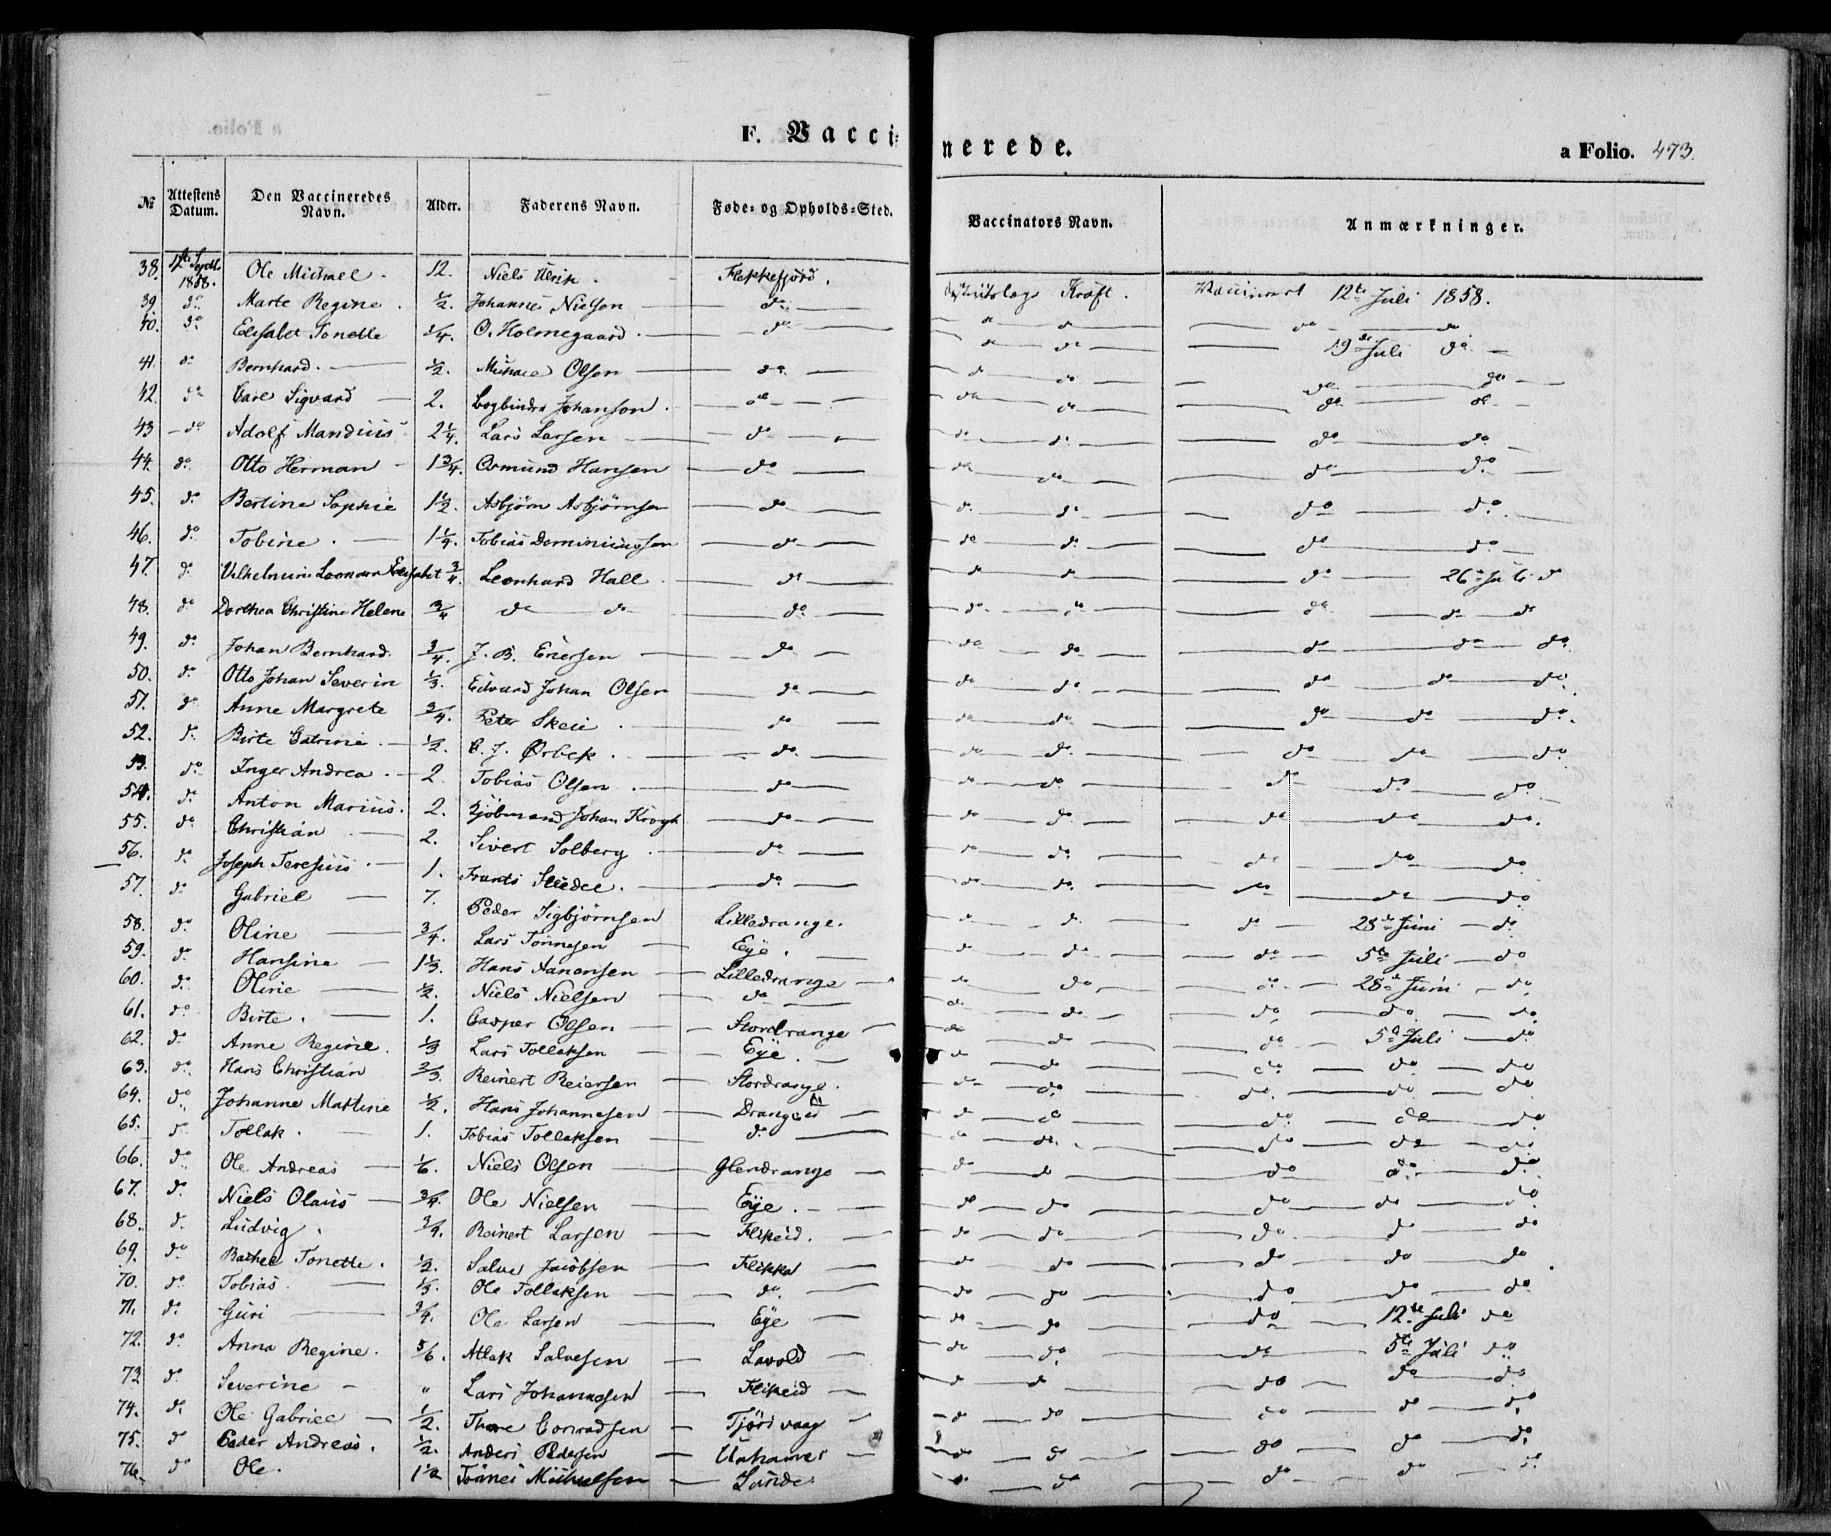 F. Vaccinerede. a Folio. 473.
№ | Attestens Datum. | Den Vaccineredes Navn. | Alder. | Faderens Navn. | Føde- og Opholds-Sted. | Vaccinators Navn. | Anmærkninger.
38. 1858. Ole Michael 12. Niels Ulrik Flekkefjord. Kraft. Vaccineret 12te Juli 1858.
39 do Marte Regine ½. Johannes Nielsen do do do do do
40. do Elisabet Tonette ¾. O. Holmegaard do do do 19de Juli do
41. do Bernhard. ½. Michael Olsen do do do do do
42. do Carl Sigvard 2. Bogbinder Johanson. do do do do do
43 do Adolf Mandius 2¼. Lars Larsen do do do do do
44. do Otto Herman 1¾. Osmund Hansen do do do do do
45. do Bertine Sophie 1½. Asbjørn Asbjørnsen do do do do do
46. do Tobine. 1¼. Tobias Dominiussen do do do do do
47. do Elisabet ¾. Leonhard Hall do do do do 26de Juli do
48. do Dorthea Christine Helene ¾ do do do do do do do do
49. do Johan Bernhard. ¾. J. B. do do do do do do
50. do Otto Johan Severin ⅓. Edvard Johan Olsen do do do do do do
51. do Anne Margrete ¾. Peter Skeie do do do do do do
52. do Birte Catrine ½. C. J. Ørbek. do do do do do do
53. do Inger Andrea 2 Tobias Olsen do do do do do do
54. do Anton Marius. 2. Kjøbmand Johan Krogh do do do do do do
55. do Christian 2. Sivert Solberg do do do do do do
56. do Joseph 1. Frants do do do do do do
57. do Gabriel 7. Peder Sigbjørnsen Lilledrange. do do do 28de Juni do
58. do Oline ¾. Lars Tønnesen Eye. do do do 5te Juli do
59. do Hansine 1⅓. Hans Aanensen Lilledrange do do do 28de Juni do
60. do Oline ½. Niels Nielsen do do do do do do
61. do Birte. 1. Casper Olsen Stordrange do do do 5te Juli do
62. do Anne Regine. ⅓ Lars Tollaksen Eye. do do do do do
63. do Hans Christian ⅔. Reinert Reiersen Stordrange. do do do do do
64. do Johanne Martine ½. Hans Johannesen Drangeid do do do do do
65. do Tollak. 1. Tobias Tollaksen do do do do do do
66. do Ole Andreas ⅙. Niels Olsen Glendrange do do do do do
67. do Niels Olaus ¾. Ole Nielsen Eye. do do do do do
68. do Ludvig. ¾. Reinert Larsen Flikeid. do do do do do
69. do Rachel Tonette. ½. Salve Jacobsen Flikka do do do do do
70. do Tobias ⅓. Ole Tollaksen do do do do do do
71. do Guri ¾. Ole Larsen Eye do do do 12te Juli do
72. do Anna Regine. 5/6. Atlak Salvesen Lavold do do do 5te Juli do
73 do Severine " Lars Johannesen Flikeid do do do do do
74. do Ole Gabriel ½. Thore Conradsen Tjørsvaag do do do do do
75. do Peder Andreas. ½. Anders Pedersen do do do do do
76 do Ole. 1½ Tønnes Michaelsen Sunde do do do do do